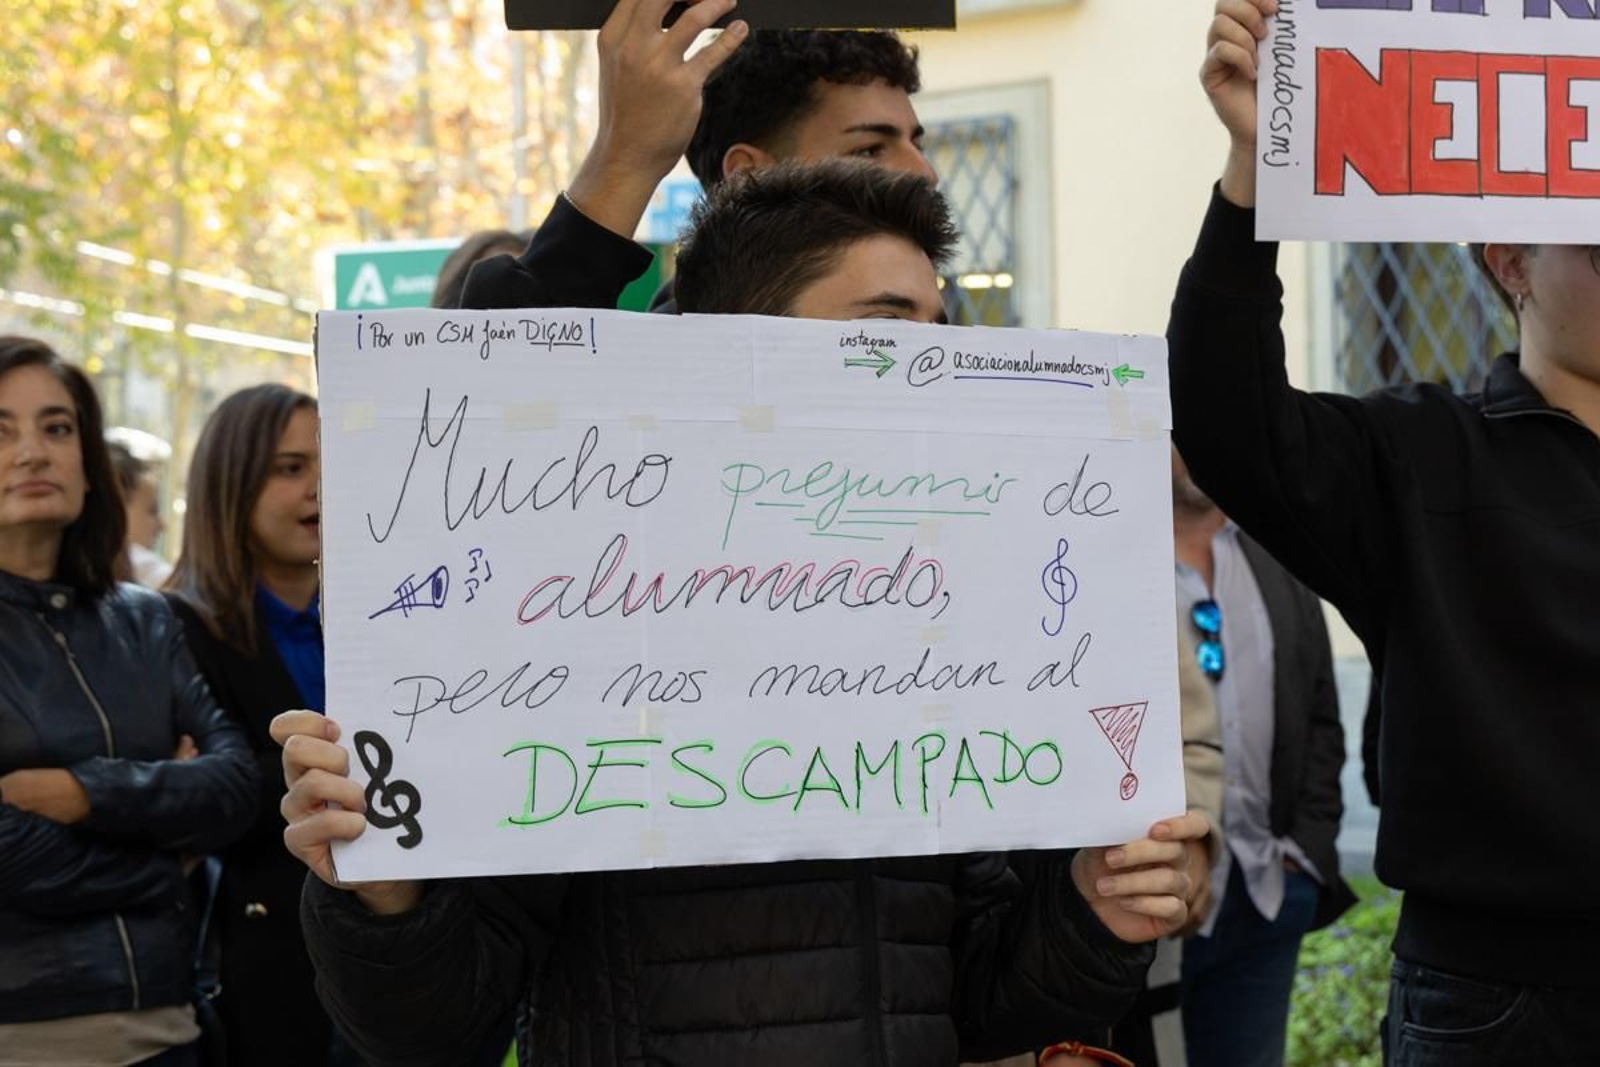 ¡Por un CSM Jaén DIGNO!
instagram
@asociacionalumnadocsmj
Mucho presumir de
alumnado,
pero nos mandan al
DESCAMPADO
!
alumnadocsmj
NECE
A